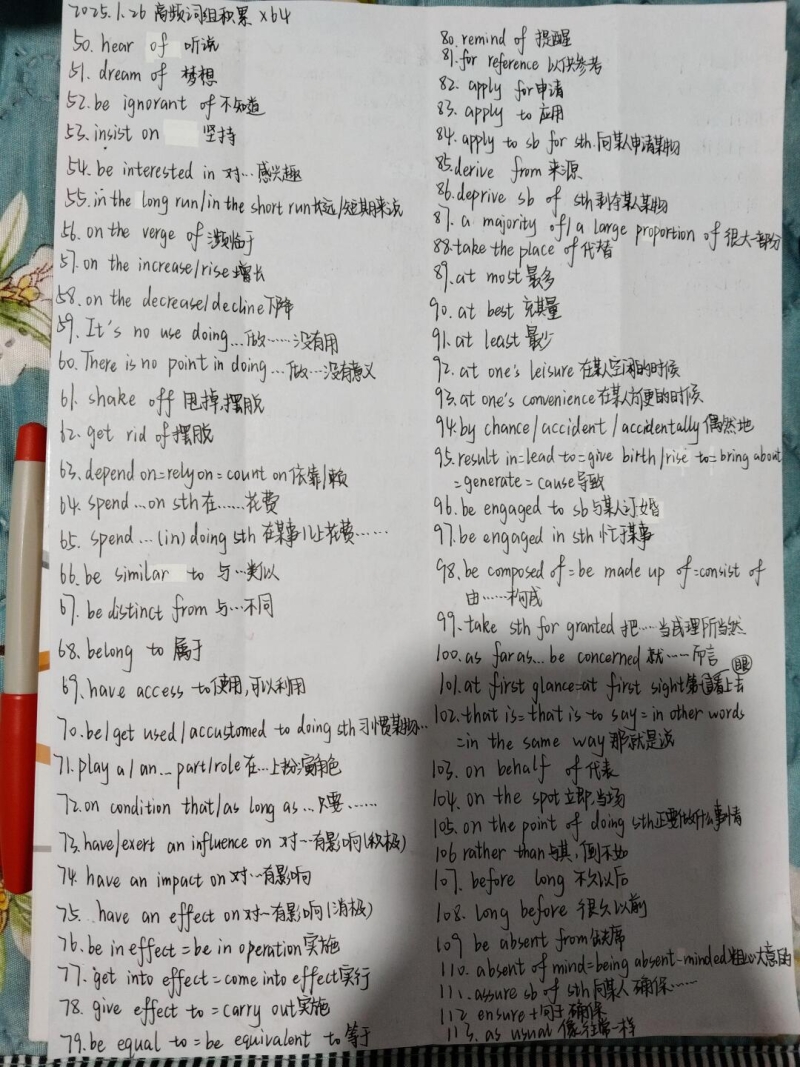 2025.1.26 高频词组积累 ×64
50. hear of 听说
51. dream of 梦想
52. be ignorant of 不知道
53. insist on 坚持
54. be interested in 对…感兴趣
55. in the long run/in the short run 长远/短期来说
56. on the verge of 濒临于
57. on the increase/rise 增长
58. on the decrease/decline 下降
59. It's no use doing...做……没有用
60. There is no point in doing ...做…没有意义
61. shake off 甩掉,摆脱
62. get rid of 摆脱
63. depend on=rely on=count on 依靠/赖
64. spend...on sth 在……花费
65. spend...(in) doing sth 在某事儿上花费……
66. be similar to 与…类似
67. be distinct from 与…不同
68. belong to 属于
69. have access to 使用,可以利用
70. be/get used/accustomed to doing sth 习惯某物…
71. play a/an... part/role 在…上扮演角色
72. on condition that/as long as ...只要……
73. have/exert an influence on 对…有影响(积极)
74. have an impact on 对…有影响
75. have an effect on 对…有影响(消极)
76. be in effect=be in operation 实施
77. get into effect=come into effect 实行
78. give effect to =carry out 实施
79. be equal to=be equivalent to 等于
80. remind of 提醒
81. for reference 以供参考
82. apply for 申请
83. apply to 应用
84. apply to sb for sth. 向某人申请某物
85. derive from 来源
86. deprive sb of sth 剥夺某人某物
87. a majority of/a large proportion of 很大一部分
88. take the place of 代替
89. at most 最多
90. at best 充其量
91. at least 最少
92. at one's leisure 在某人空闲的时候
93. at one's convenience 在某人方便的时候
94. by chance/accident/accidentally 偶然地
95. result in=lead to=give birth/rise to=bring about
=generate=cause 导致
96. be engaged to sb 与某人订婚
97. be engaged in sth 忙于某事
98. be composed of=be made up of=consist of
由……构成
99. take sth for granted 把……当成理所当然
100. as far as... be concerned 就……而言
101. at first glance=at first sight 第一眼看上去
102. that is=that is to say=in other words
=in the same way 那就是说
103. on behalf of 代表
104. on the spot 立即,当场
105. on the point of doing sth 正要做什么事情
106 rather than 与其,倒不如
107. before long 不久以后
108. long before 很久以前
109 be absent from 缺席
110. absent of mind=being absent-minded 粗心大意的
111. assure sb of sth 向某人确保……
112 ensure+句子 确保
113. as usual 像往常一样